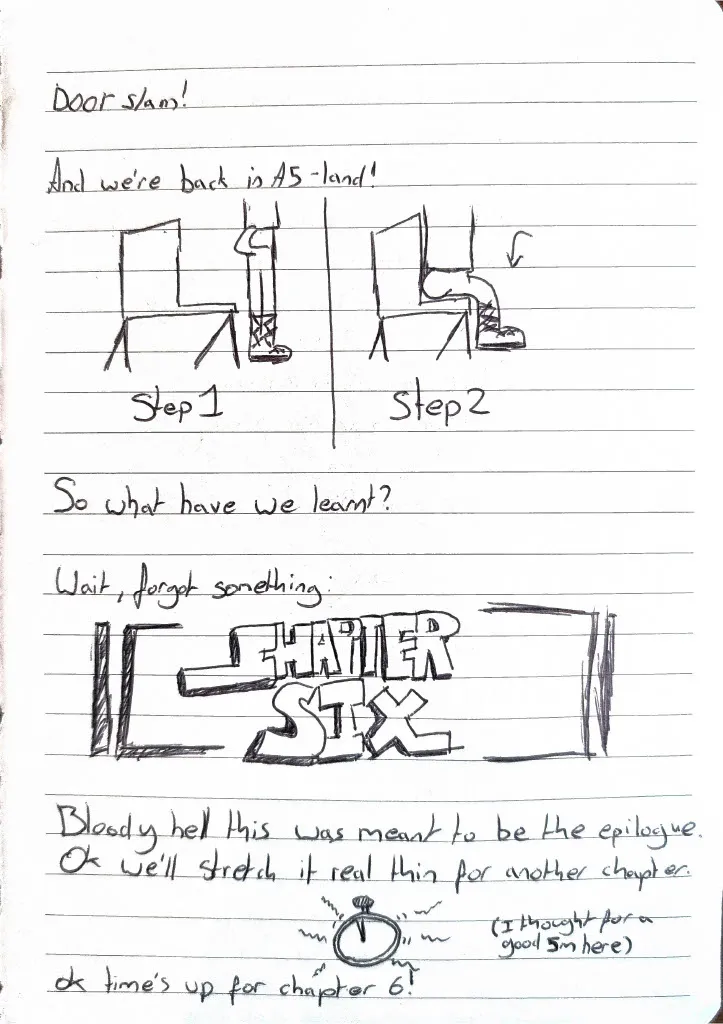 Door slam!
And we're back in A5-land!
Step 1
Step 2
So what have we learnt?
Wait, forgot something:
CHAPTER
SIX
Bloody hell this was meant to be the epilogue.
Ok we'll stretch it real thin for another chapter.
(I thought for a
good 5m here)
ok time's up for chapter 6!